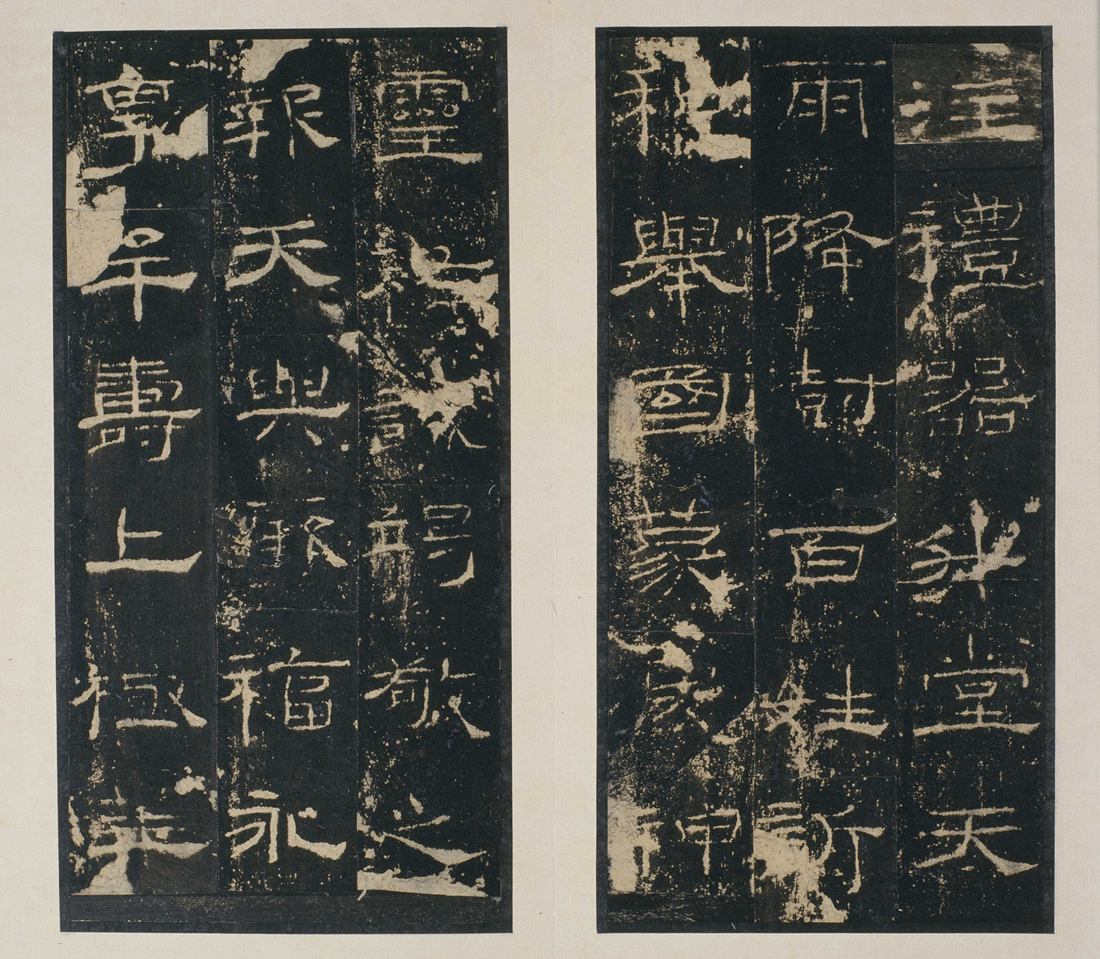 注禮器升堂天
雨降澍百姓訢
和舉國蒙慶神
靈祐誠竭敬之
報天與厥福永
享牟壽上極華